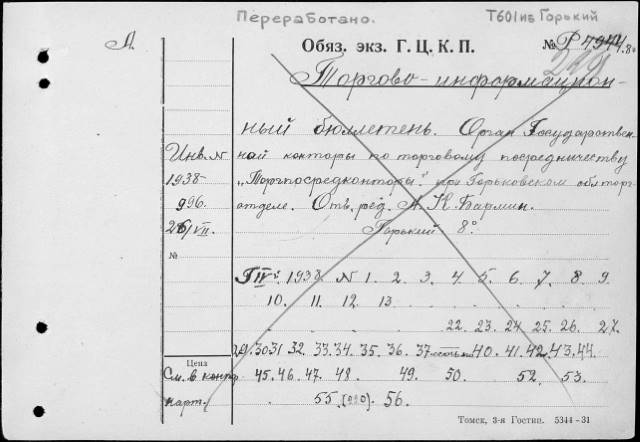 Переработано.
Т601 из Горький
Л.
Обяз. экз. Г. Ц. К. П.
№ Р 7944.8°
Торгово-информацион-
ный бюллетень. Орган Государствен-
ной конторы по торговому посредничеству
„Торгпосредконторы" при Горьковском облторг-
отделе. Отв. ред. А. К. Бармин.
Горький 8°
Инв. N
1938
996.
26/VII.
№
Г IV: 1938 N 1. 2. 3. 4. 5. 6. 7. 8. 9.
10. 11. 12. 13
22. 23. 24. 25. 26. 27.
29. 30 31 32. 33. 34. 35. 36. 37. 40. 41. 42. 43. 44.
Цена
См. в контр.
карт.
45. 46. 47. 48. 49. 50. 52. 53.
55. 56.
Томск, 3-я Гостип. 5344 - 31